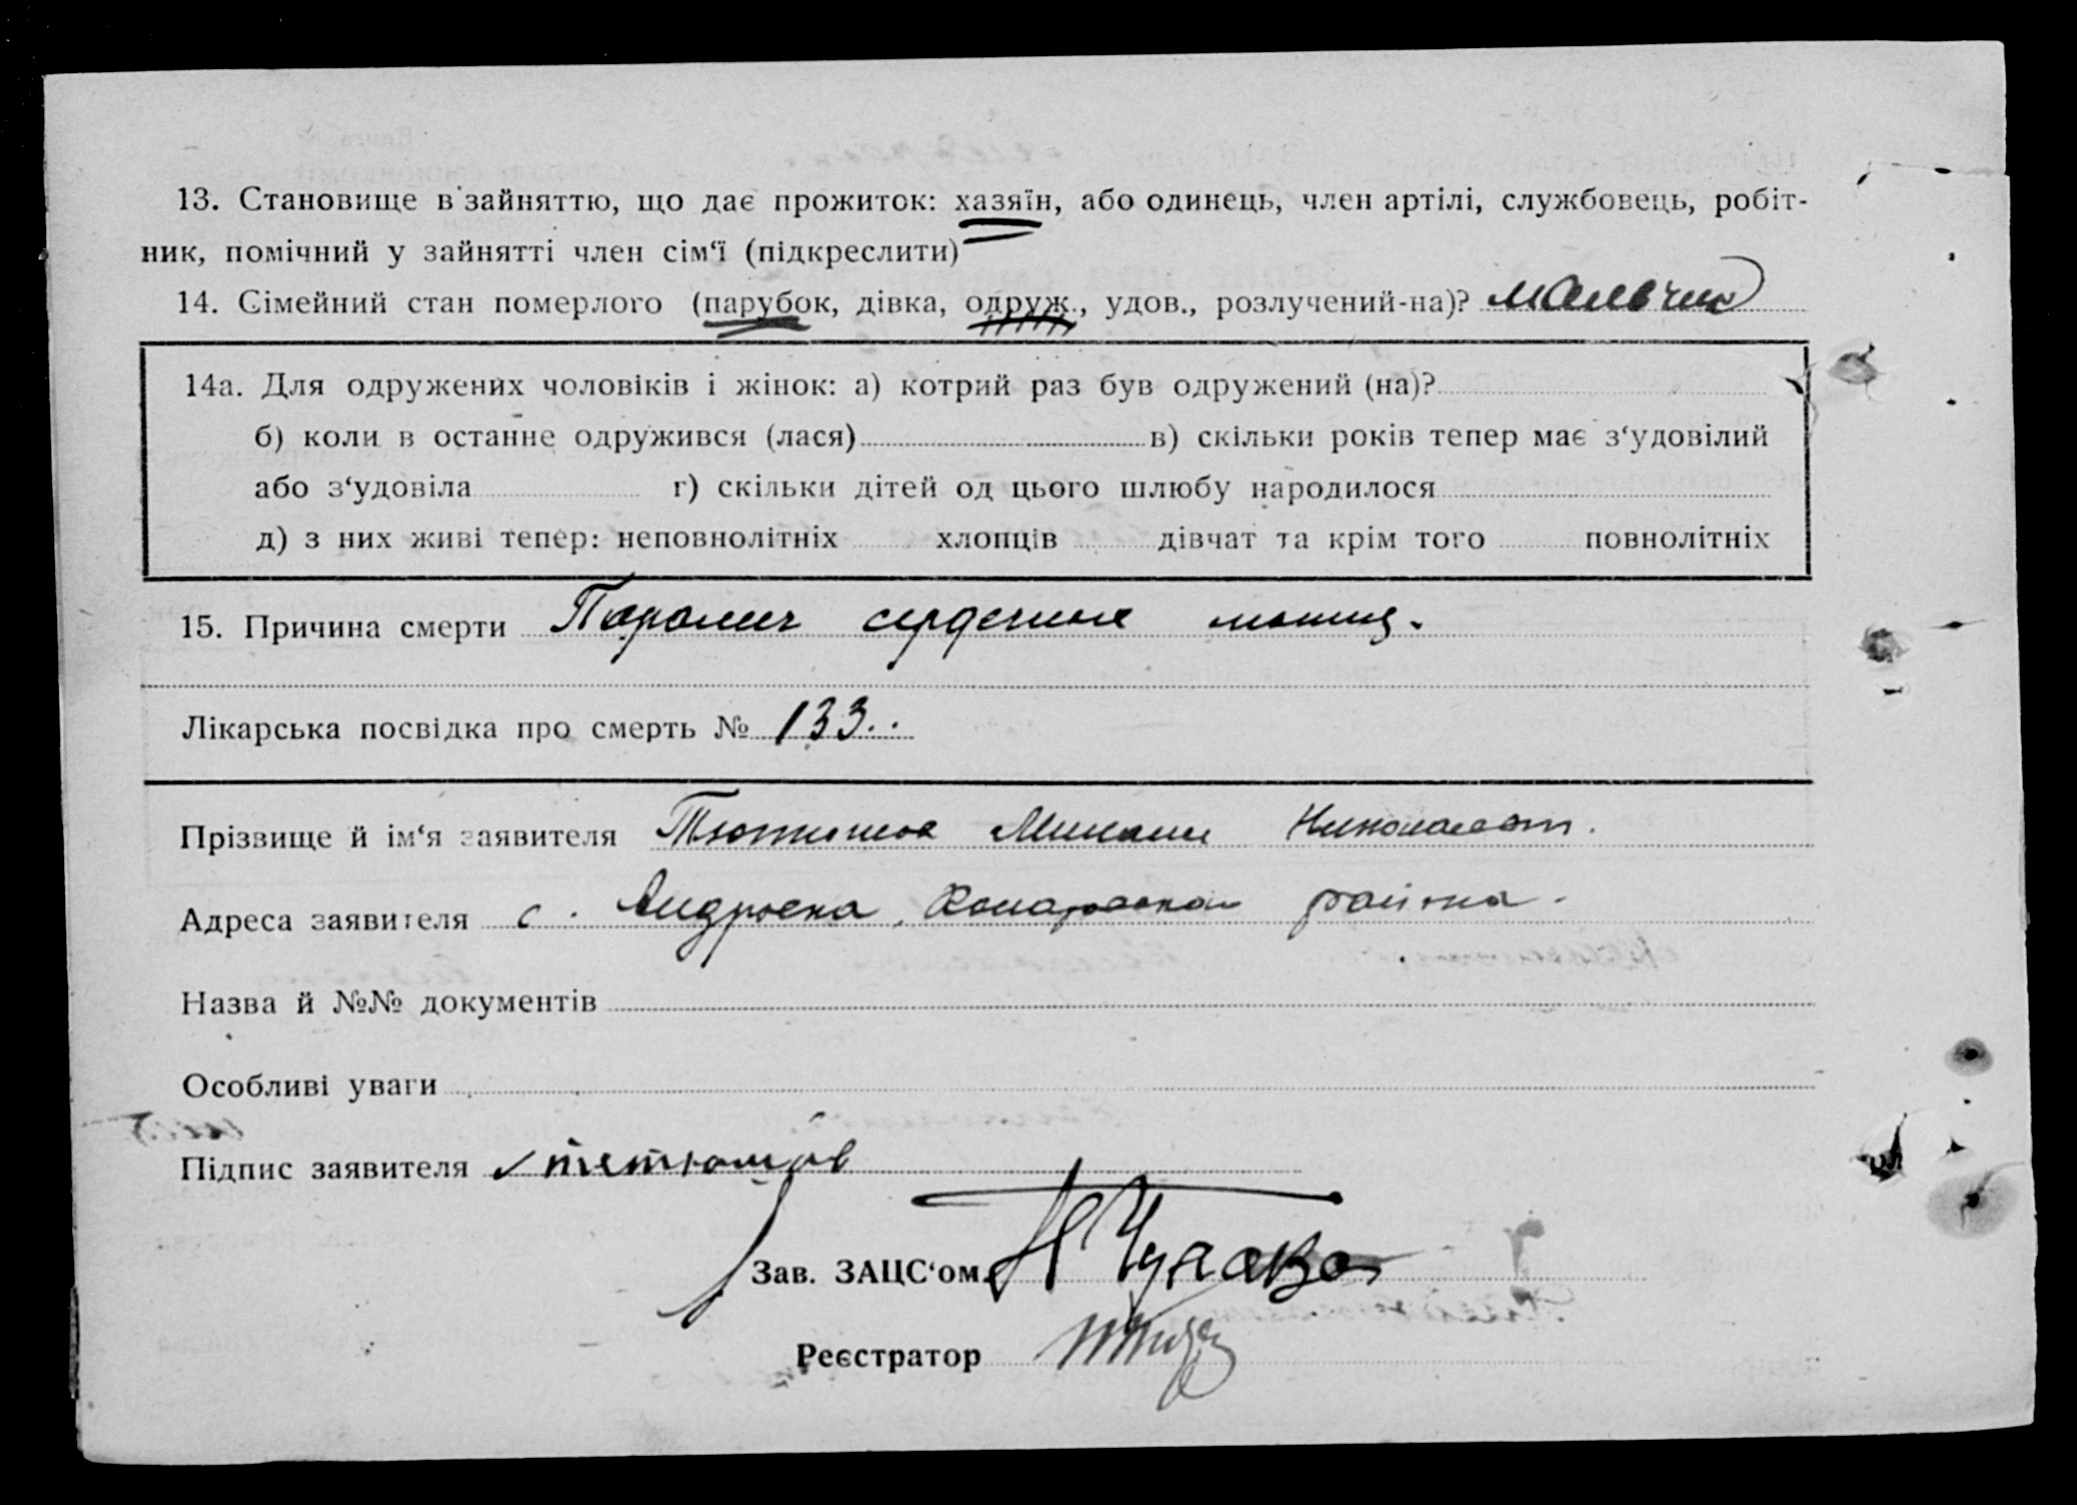 13. Становище в зайняттю, що дає прожиток: хазяїн, або одинець, член артілі, службовець, робіт-
ник, помічний у зайнятті член сім‘ї (підкреслити)
14. Сімейний стан померлого (парубок, дівка, одруж., удов., розлучений-на)? мальчик
14а. Для одружених чоловіків і жінок: а) котрий раз був одружений (на)?
б) коли в останне одружився (лася) в) скільки років тепер має з‘удовілий
або з‘удовіла г) скільки дітей од цього шлюбу народилося
д) з них живі тепер: неповнолітніх хлопців дівчат та крім того повнолітніх
15. Причина смерти Паралич сердечных мышц.
Лікарська посвідка про смерть № 133.
Прізвище й ім‘я заявителя Михаил
Адреса заявителя с. района.
Назва й №№ документів
Особливі уваги
Підпис заявителя
Зав. ЗАЦС‘ом
Реєстратор